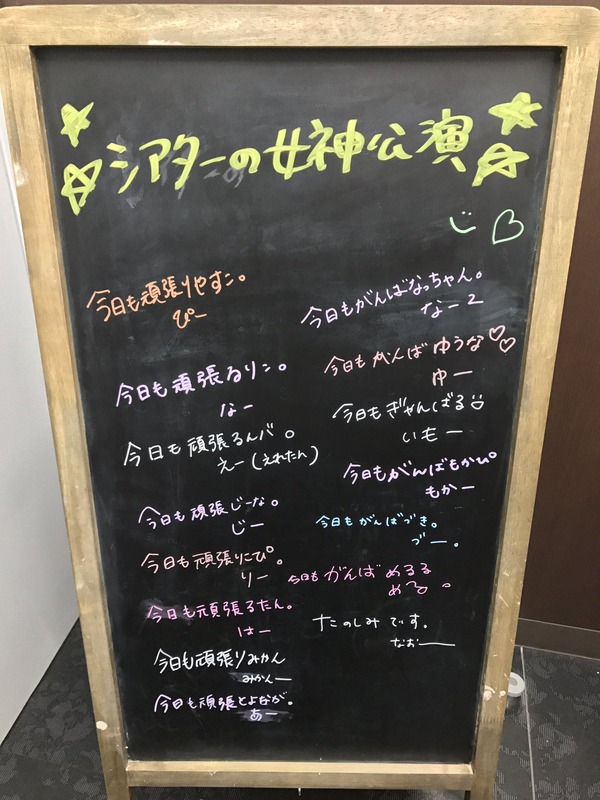 シアターの女神公演
今日も頑張りやすこ。
ぴー
今日も頑張るりこ。
なー
今日も頑張るんバ。
えー(えれたん)
今日も頑張じーな。
じー
今日も頑張りにぴ。
りー
今日も頑張るたん。
はー
今日も頑張りみかん
みかんー
今日も頑張とよなが。
あー
今日もがんばなっちゃん。
なー2
今日もがんばゆうな♡♡
ゆー
今日もぎゃんばる
いもー
今日もがんばもかぴ
もかー
今日もがんばづき。
づー。
今日もがんばめるる
め〜。
たのしみです。
なおー